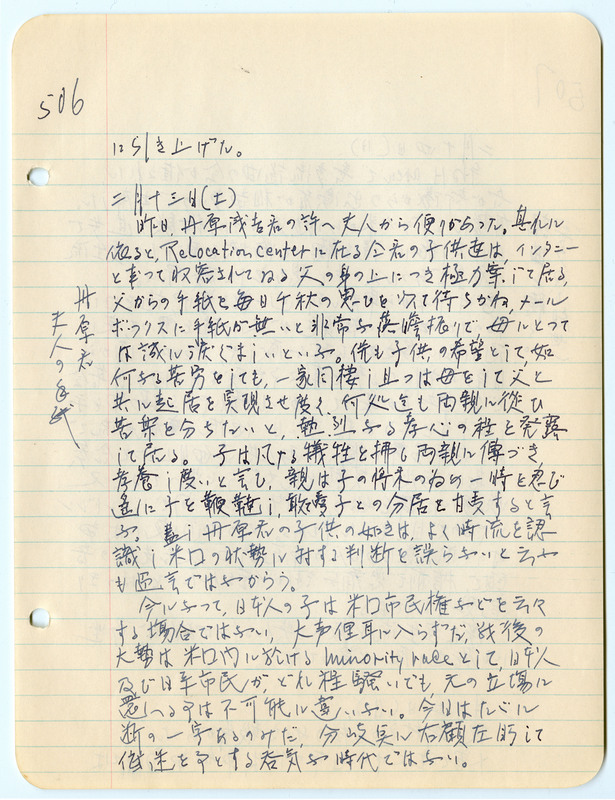 506
に引き上げた。
二月十三日(土)
昨日、丹原茂吉君の許へ夫人から便りがあった。其れに
依ると、Relocation centerに在る仝君の子供達は、インタニー
となって収容されてゐる父の身の上につき極力案じて居る、
父からの手紙を毎日千秋の思ひを以て待ちかね、メール
ボックスに手紙が無いと非常な落膽振りで、母にとつて
不識に涙ぐましいといふ。併も子供の希望として、如
何なる苦労をしても、一家同棲し且つは母をして父と
共に起居を実現させ度く、何処迄も両親に從ひ
苦楽を分ちたいと、熱烈なる孝心の程を発露
して居る。子は凡ゆる犠牲を拂し両親に傳づき
孝養し度いと言ひ、親は子の将来の為め一時を忍び
遙に子を鞭韃し、敢て愛子との分居を甘責すると言
ふ。蓋し丹原君の子供の如きは、よく時流を認
識し米口の状勢に対する判断を誤らないと云ふ
も過言ではなからう。
今になつて、日本人の子は米口市民権などを云々
する場合ではない、大声俚耳に入らずだ、戦後の
大勢は米口内に於けるminority raceとして、日本人
及び日系市民が、どれ程騒いでも、元の立場に
還へる事は不可能に違いない。今日はたゞに
断の一字あるのみだ、分岐点に右顧左眄して
低迷を事とする呑気な時代ではない。
丹原君
夫人の